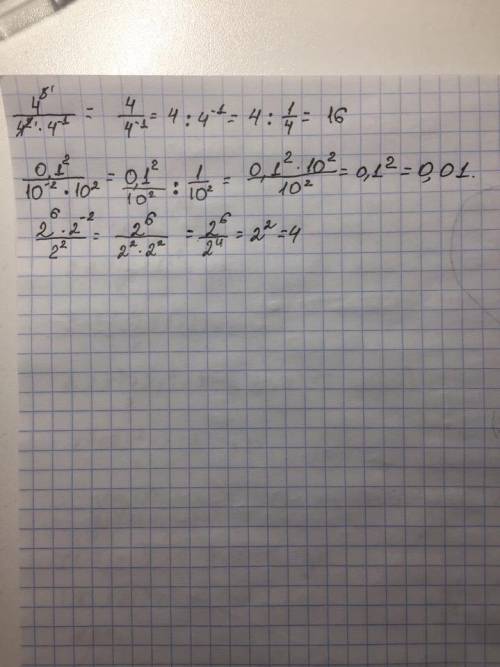 4³¹ / 4² · 4⁻¹ = 4 / 4⁻¹ = 4 : 4⁻¹ = 4 : 1/4 = 16
0,1² / 10⁻² · 10² = 0,1² / 10² : 1 / 10² = 0,1² · 10² / 10² = 0,1² = 0,01.
2⁶ · 2⁻² / 2² = 2⁶ / 2² · 2² = 2⁶ / 2⁴ = 2² = 4